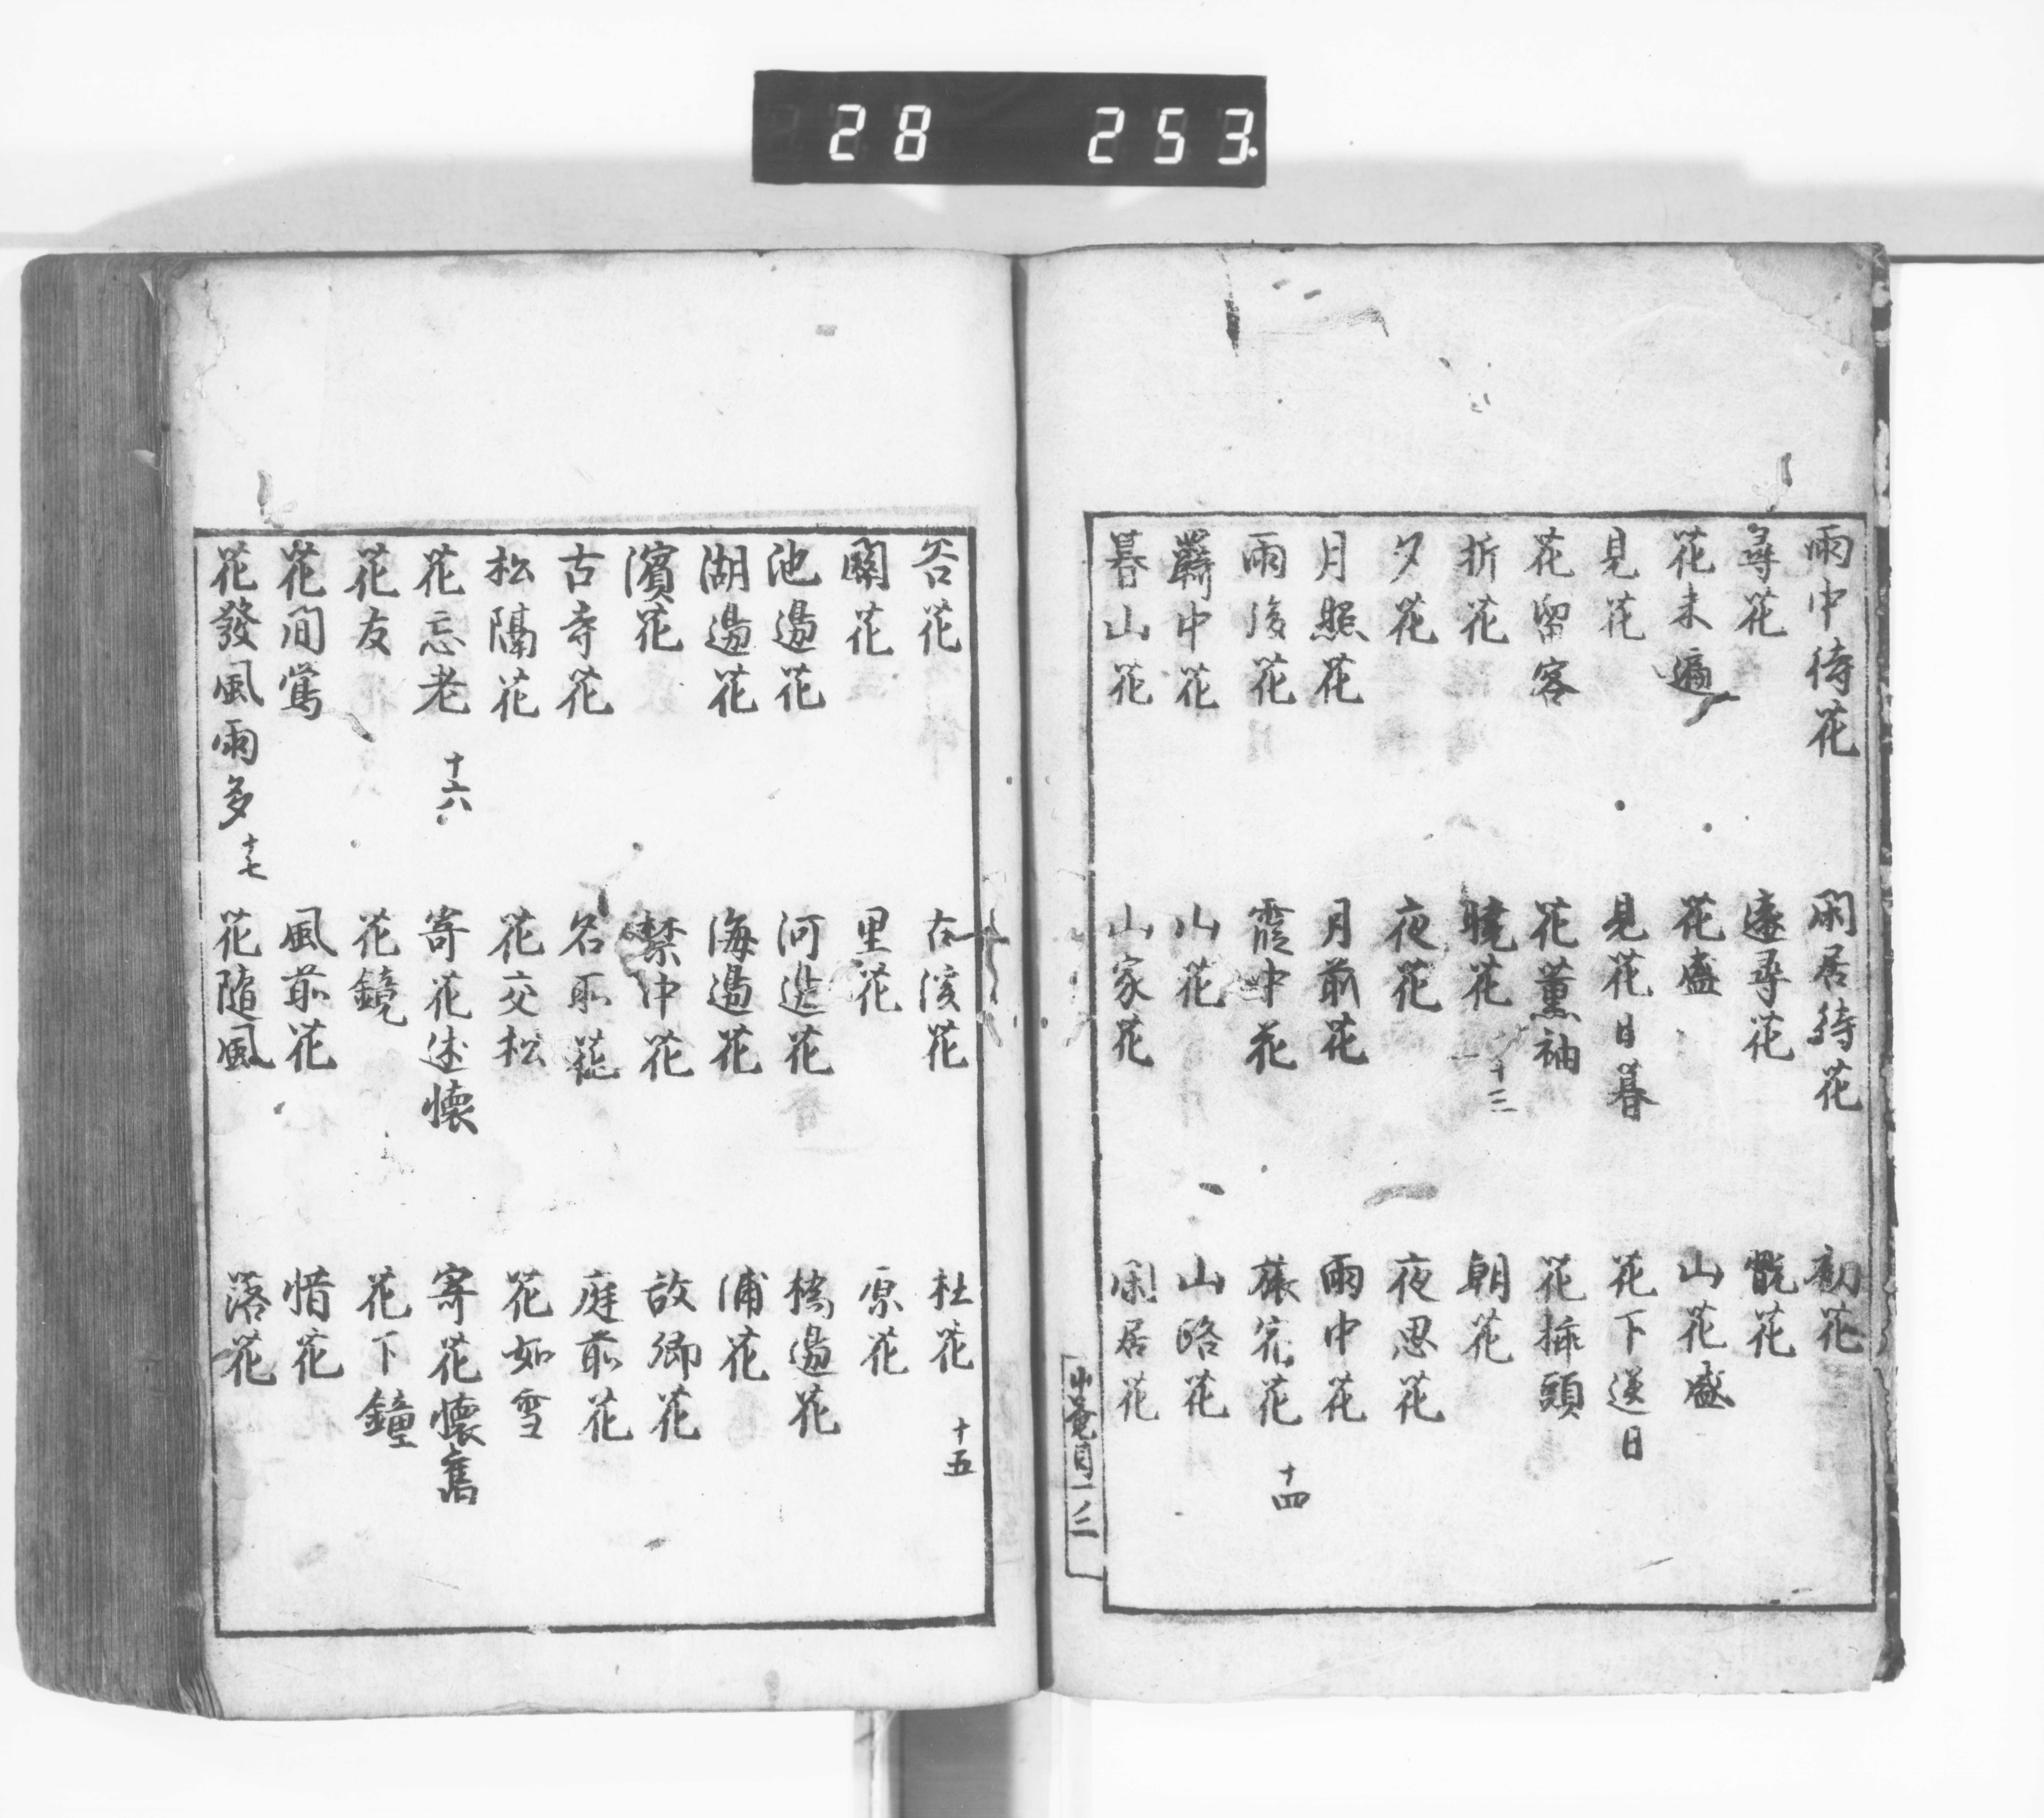 28 253
雨中待花 閑居待花 初花
尋花 遠尋花 翫花
花未遍 花盛 山花盛
見花 見花日暮 花下送日
花留客 花薫袖 花挿頭
折花 曉花 十三 朝花
夕花 夜花 夜思花
月照花 月前花 雨中花
雨後花 霞中花 旅宿花 十四
羇中花 山花 山路花
暮山花 山家花 閑居花
山菴目一 三
谷花 溪花 杜花 十五
關花 里花 原花
池邊花 河邊花 橋邊花
湖邊花 海邊花 浦花
濱花 禁中花 故郷花
古寺花 名所花 庭前花
松隔花 花交松 花如雪
花忘老 十六 寄花述懷 寄花懷舊
花友 花鏡 花下鐘
花間鶯 風前花 惜花
花發風雨多 十七 花隨風 落花